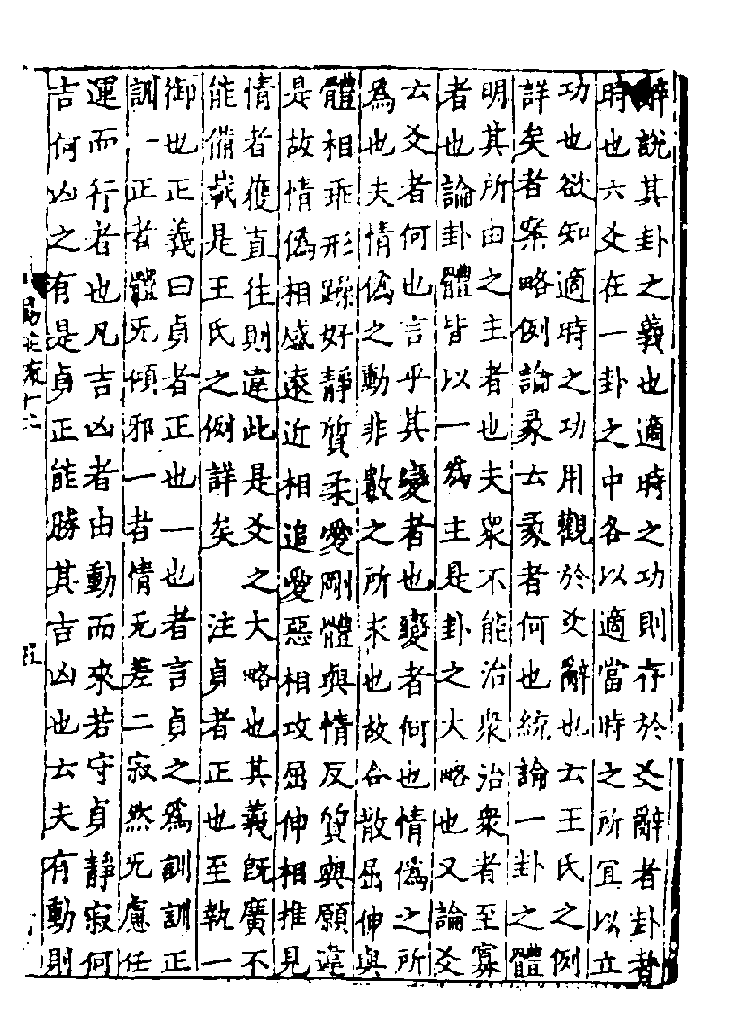 辭說其卦之義也適時之功則存於爻辭者卦者
時也六爻在一卦之中各以適當時之所宜以立
功也欲知適時之功用觀於爻辭也云王氏之例
詳矣者案略例論彖云彖者何也統論一卦之體
明其所由之主者也夫衆不能治衆治衆者至寡
者也論卦體皆以一為主是卦之大略也又論爻
云爻者何也言乎其變者也變者何也情偽之所
為也夫情偽之動非數之所求也故合散屈伸與
體相乖形躁好靜質柔愛剛體與情反質與願違
是故情偽相感遠近相追愛惡相攻屈伸相推見
情者獲直往則違此是爻之大略也其義旣廣不
能備載是王氏之例詳矣　注貞者正也至執一
御也正義曰貞者正也一也者言貞之爲訓訓正
訓一正者體无傾邪一者情无差二寂然无慮任
運而行者也凡吉凶者由動而來若守貞靜寂何
吉何凶之有是貞正能勝其吉凶也云夫有動則
易注疏十二